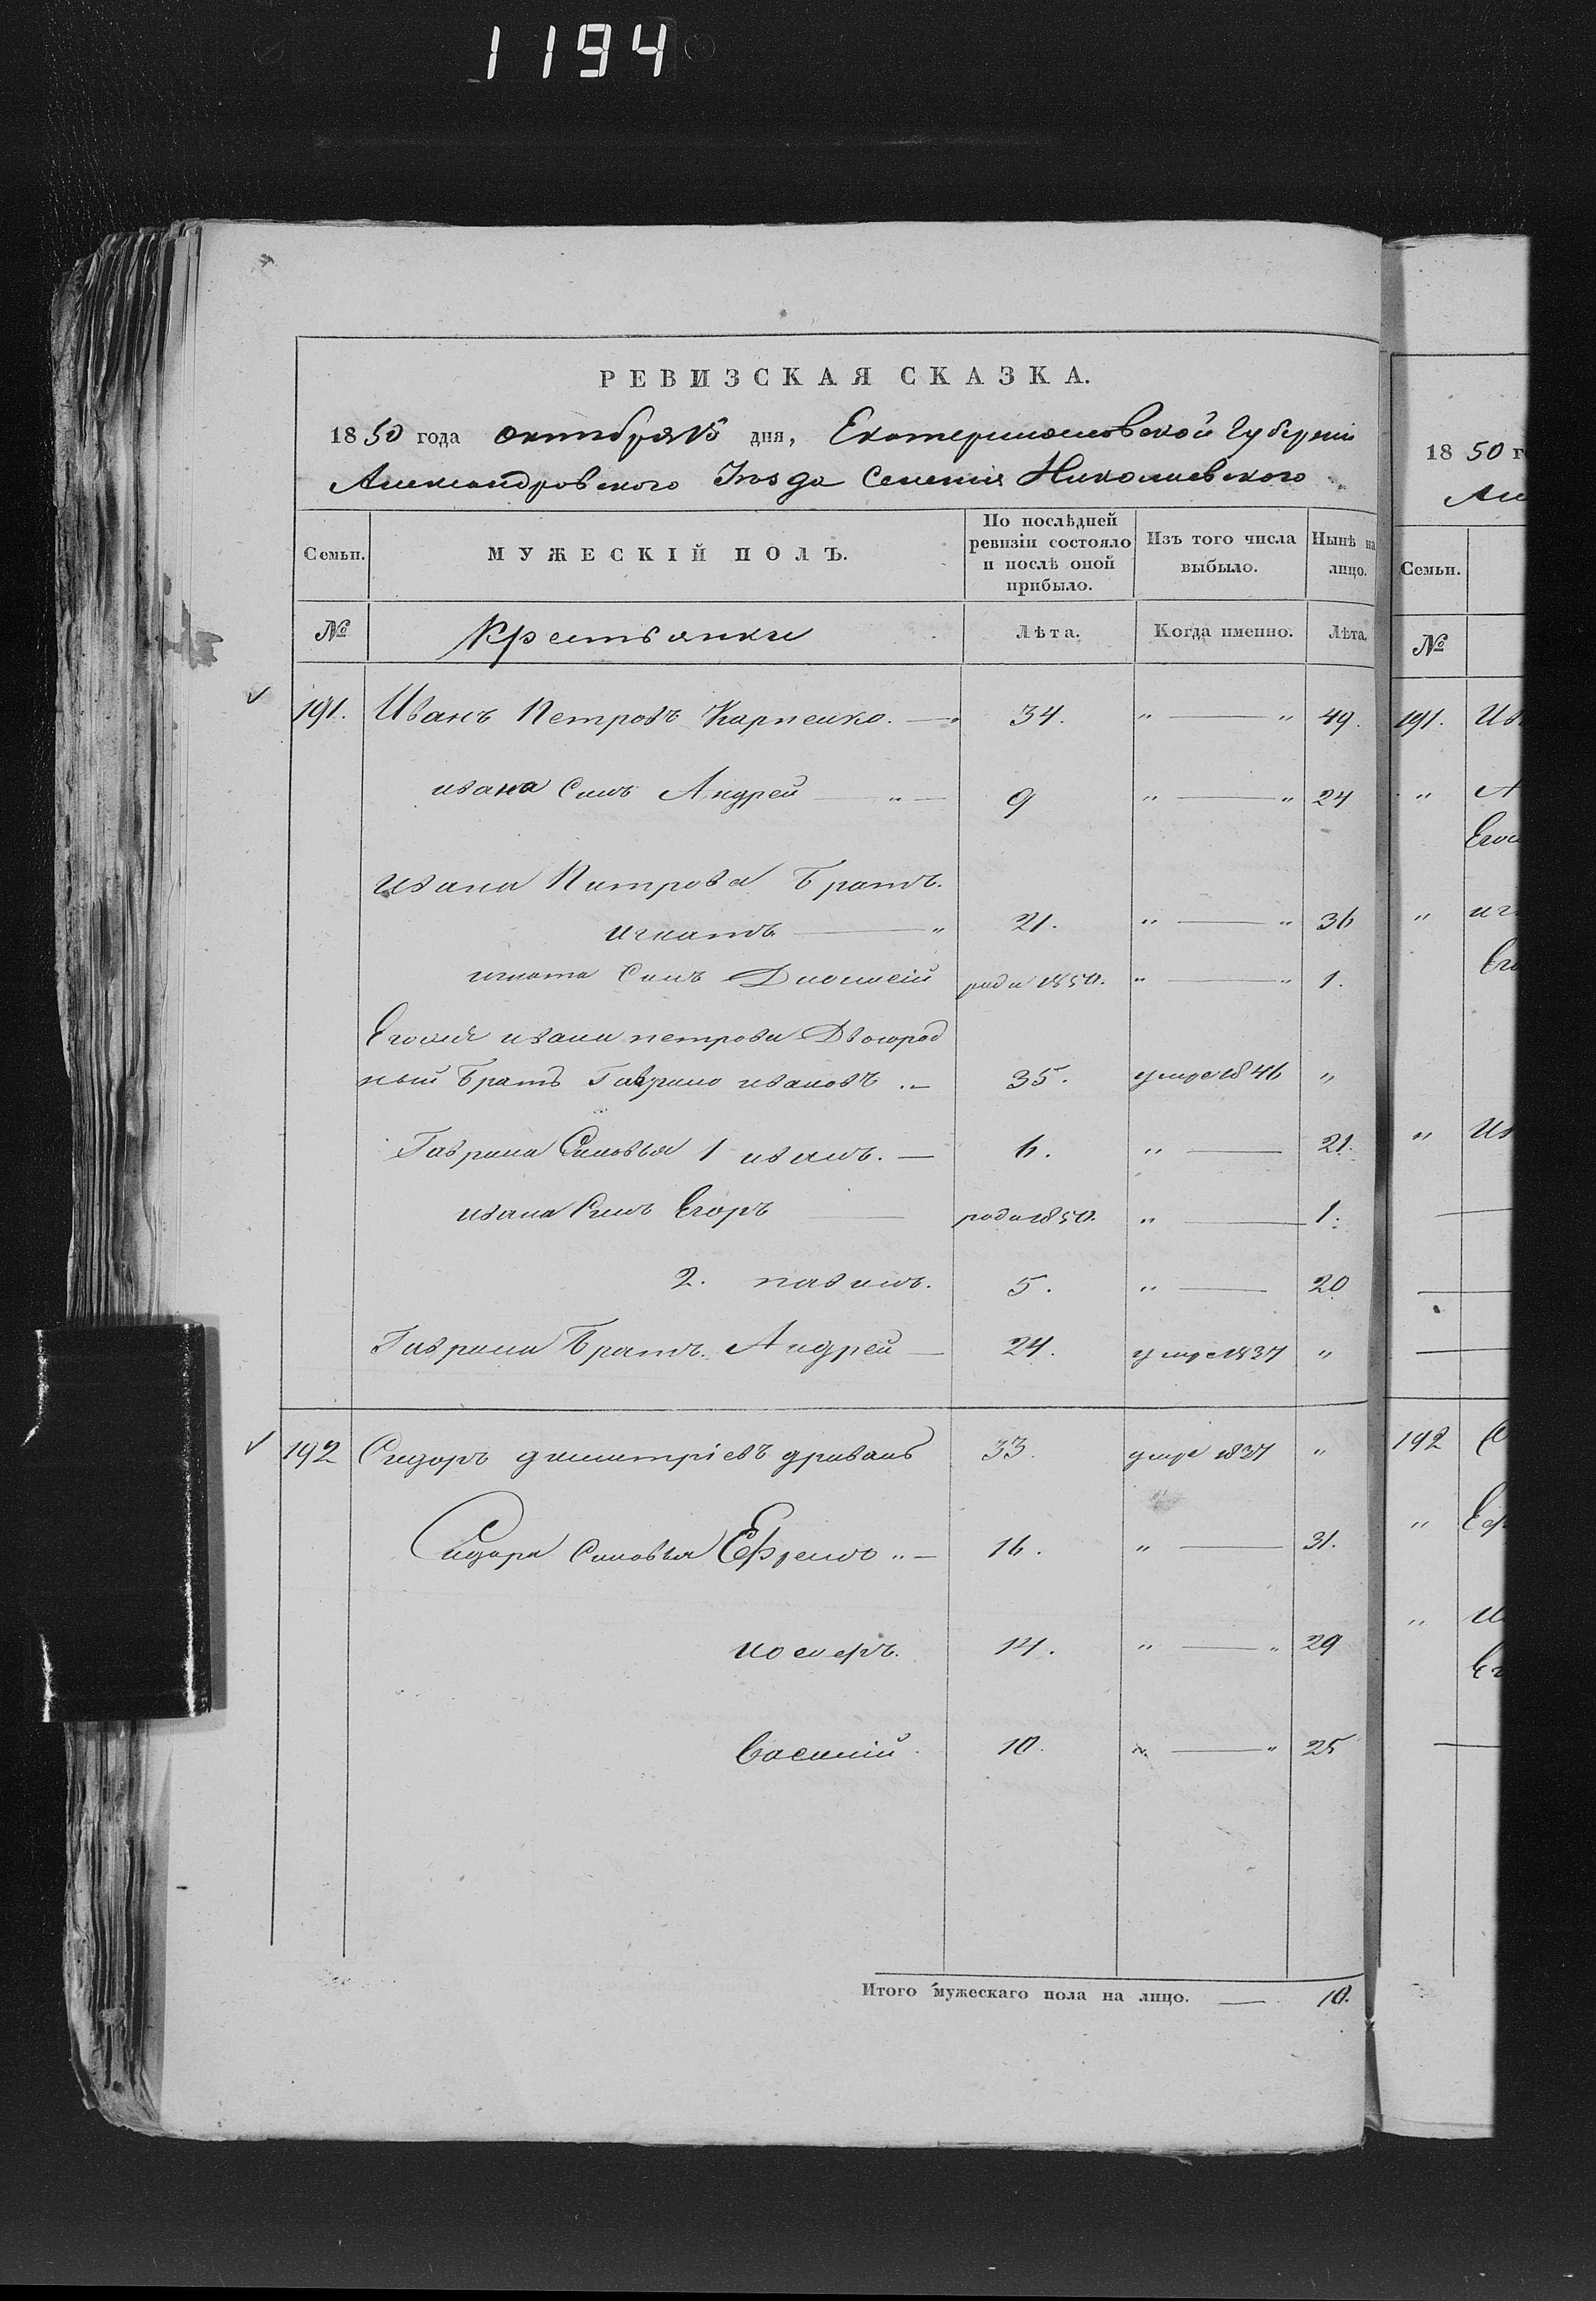 1194
РЕВИЗСКАЯ СКАЗКА.
1850 года октября 15 дня, Екатеринославской Губерніи
Александровского Уезда Селенія Николаевского
Семьи.
МУЖЕСКІЙ ПОЛЪ.
По послѣдней ревизіи состояло и послѣ оной прибыло.
Изъ того числа выбыло.
Нынѣ на лицо.
№ Крестьянки Лѣта. Когда именно. Лѣта.
191. Иванъ Петровъ Карпенко. — 34. " — " 49.
ивана Сынъ Андрей — " — 9 " — " 24
ивана Питрова Братъ.
игнатъ — " 21. " — " 36
игната Сынъ Дионисій рода 1850. " — " 1.
Егоже ивана петрова Двоюрод
ный Братъ Гаврило ивановъ .– 35. умре 1846 "
Гаврила Сыновья 1 иванъ. — 6. " — 21.
ивана Сынъ Егоръ — рода 1850. " — 1.
2. павилъ. 5. " — 20
Гаврила Братъ. Андрей — 24. умре 1837 "
192 Сидоръ димитріевъ 33. умре 1837 "
Сидора Сыновья Ефремъ " — 16. " — 31.
иосифъ. 14. " — " 29
Василій. 10. " — " 25
Итого мужескаго пола на лицо. — 10.
1850 г
Семьи.
№
191.
192